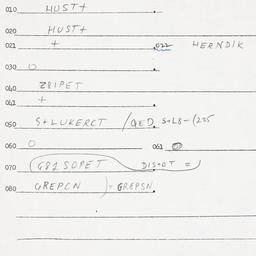 010 HUST+
020 HUST+
021 + 022 HERNDIK
030 O
040 281PET
041 +
050 S+LUKERCT /QED S+L8-(235
060 O 061
070 (G81SOPET DIS+OT =)
080 GREPCN )=GREPSN